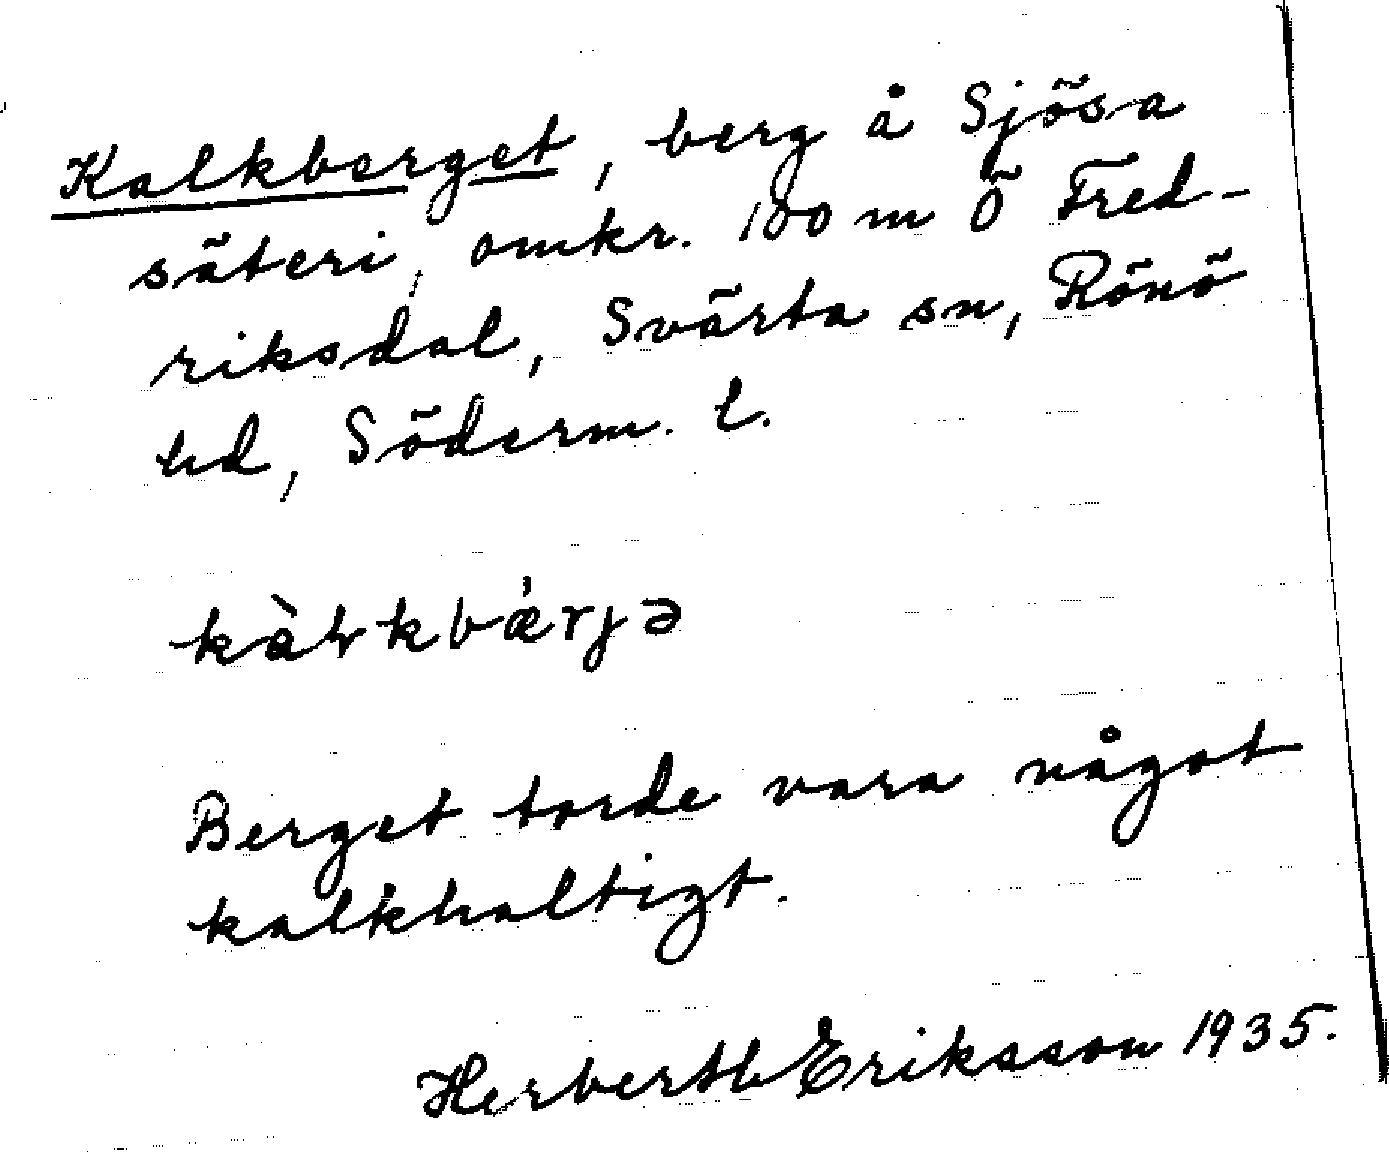 Kalkberget, berg å Sjösa
säteri, omkr. 100 m Ö Fred-
riksdal, Svärta sn, Rönö
hd, Söderm. l.
kàɽkbǽrjə
Berget torde vara något
kalkhaltigt.
Herberth Eriksson 1935.